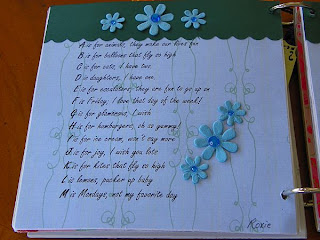 A is for animals, they make our lives fun
B is for balloons that fly so high
C is for cats, I have two
D is daughters, I have one
E is for escalators, they are fun to go up on
F is Friday, I love that day of the week!
G is for glamorous, I wish
H is for hamburgers, oh so yummy!
I is for ice cream, won't say more
J is for joy, I wish you lots
K is for kites that fly so high
L is lemons, pucker up baby
M is Mondays, not my favorite day
Roxie